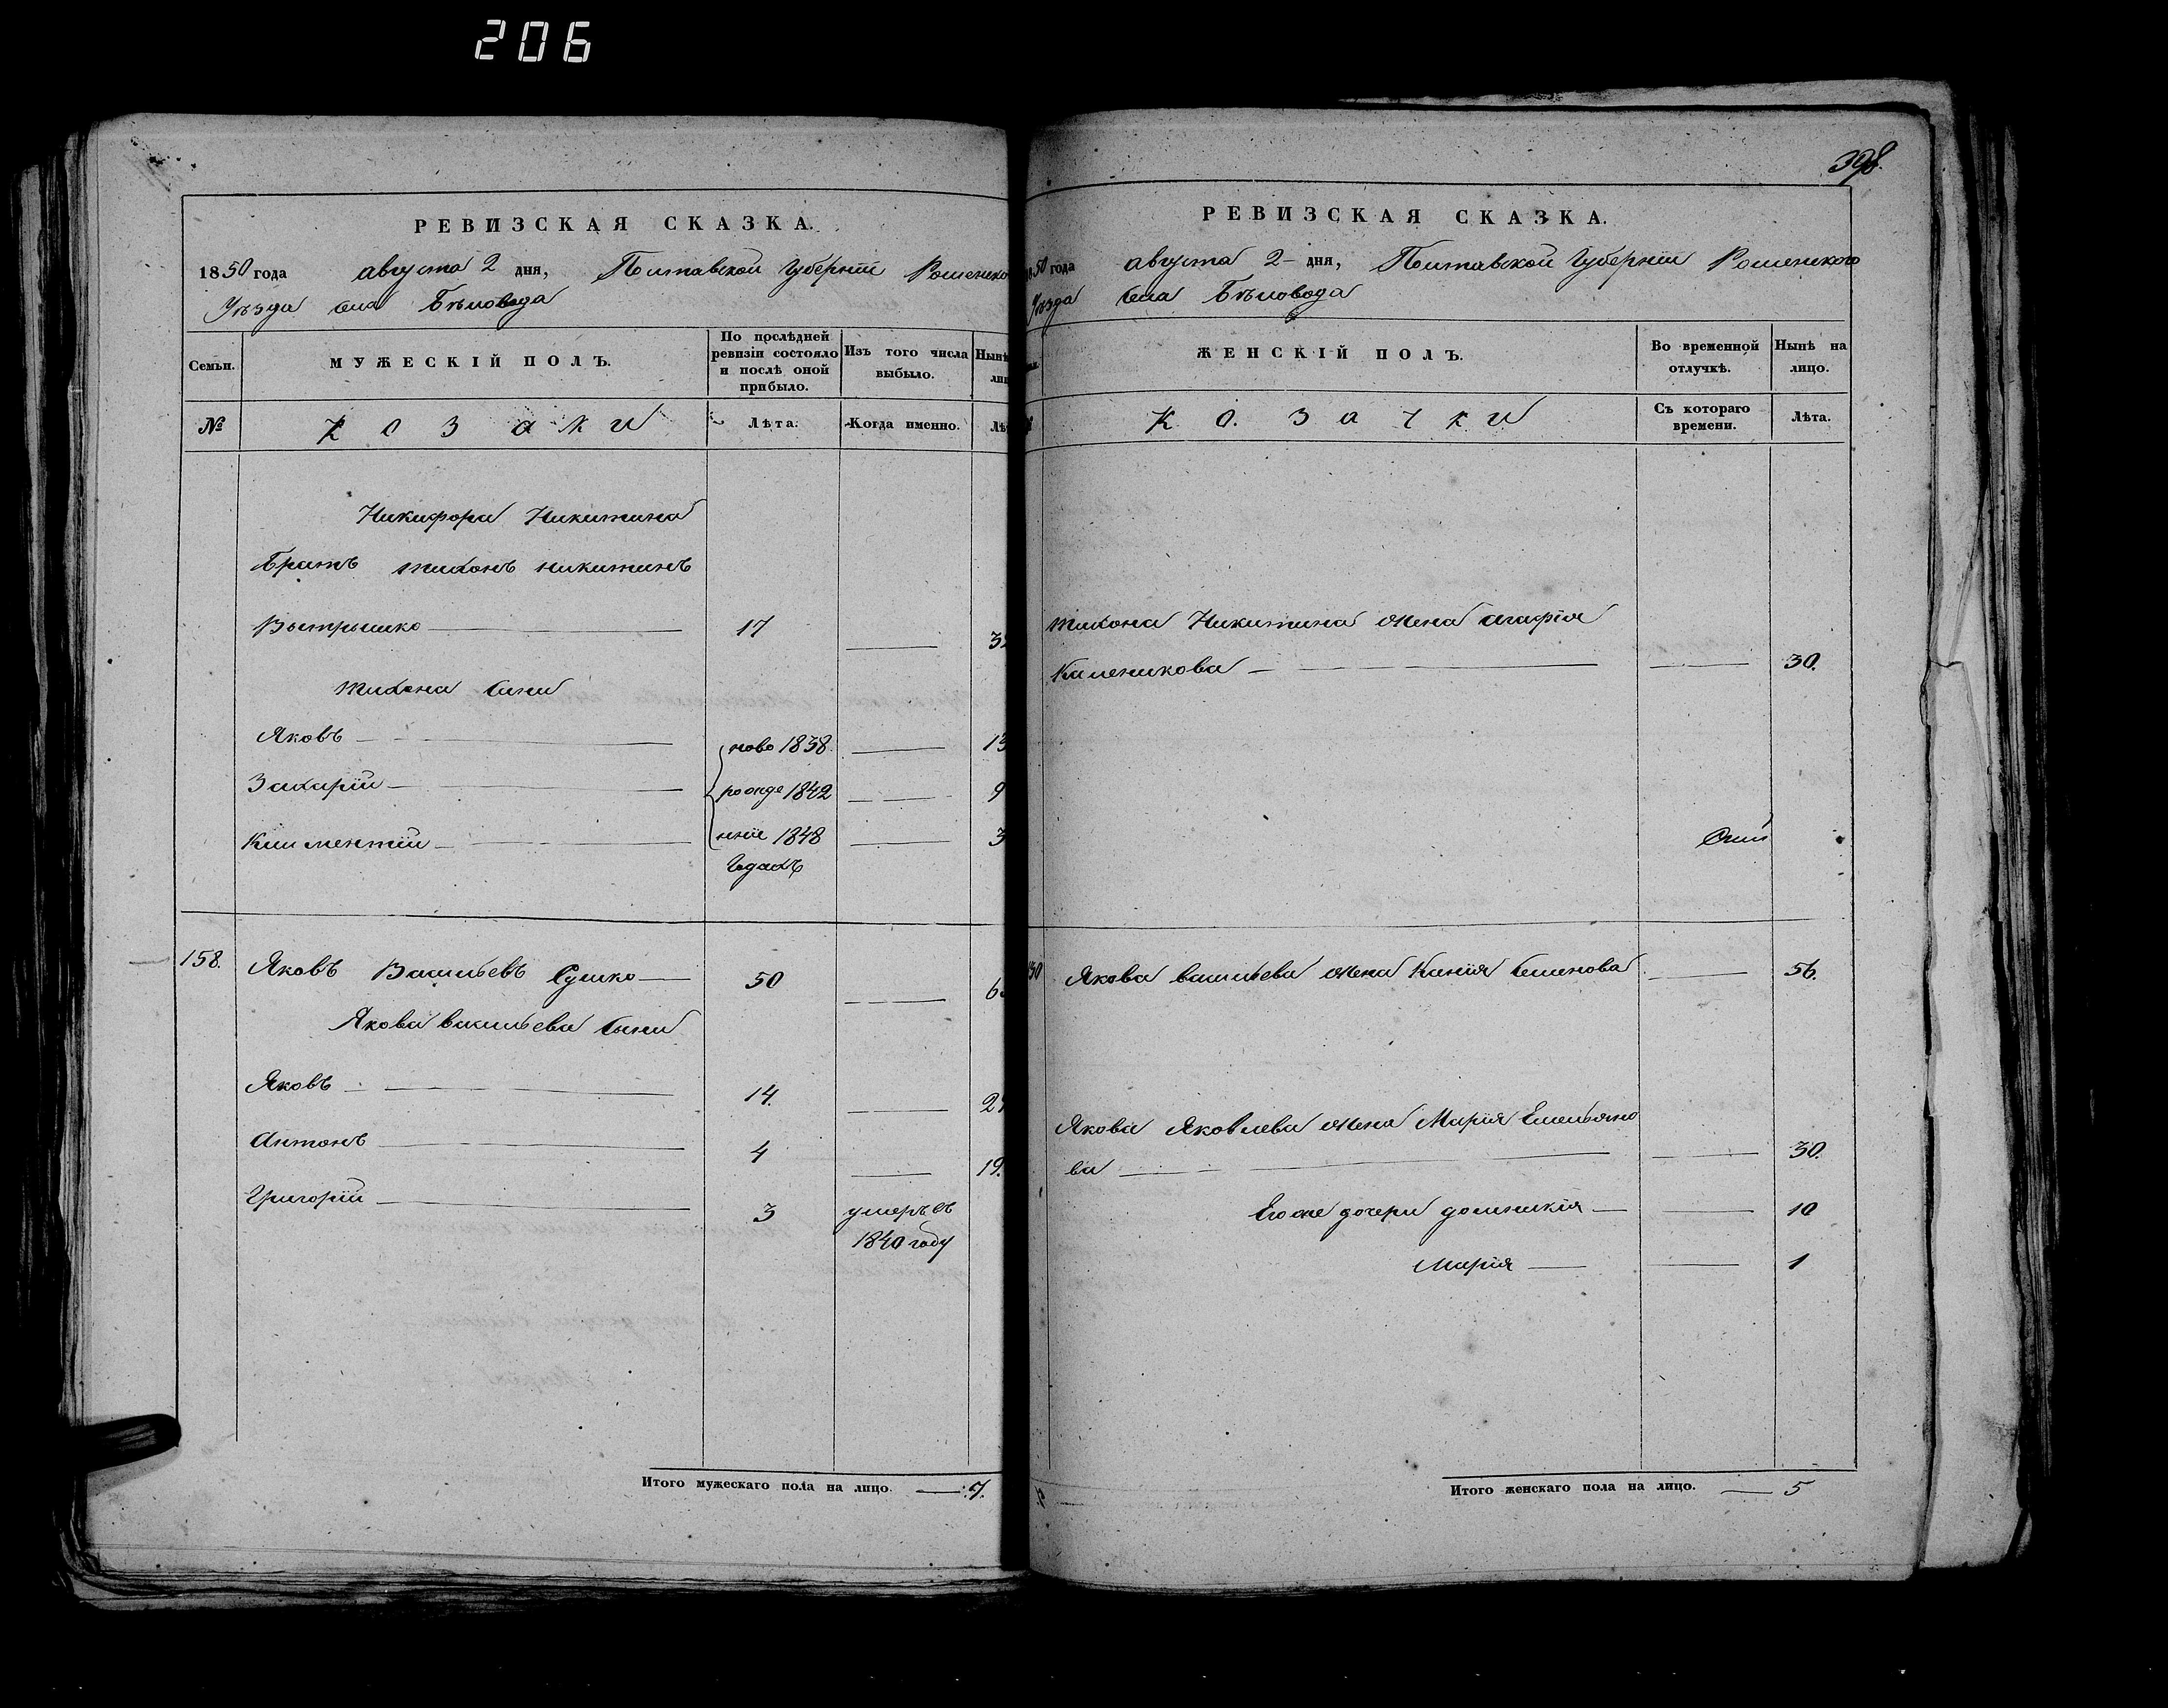 206
398.
РЕВИЗСКАЯ СКАЗКА.
1850 года августа 2 дня, Полтавской Губерніи Роменско
Уѣзда села Бѣловода
Семьи.
МУЖЕСКІЙ ПОЛЪ.
По послѣдней ревизіи состояло и послѣ оной прибыло.
Изъ того числа выбыло.
Нынѣ
№
Козаки
Лѣта.
Когда именно.
Никифора Никитина
Братъ тихонъ никитинъ
17
тихона сини
Яковъ ново 1838. 13
Захарій рожде 1842 9
Климентій нніе 1848 3
Годахъ
158. Яковъ Васильевъ Сушко 50
Якова васильева сыни
Яковъ 14.
Антонъ 4 19.
Григорій 3 умеръ въ
1840 году
Итого мужескаго пола на лицо. 7.
РЕВИЗСКАЯ СКАЗКА.
1850 года августа 2 дня, Полтавской Губерніи Роменского
Уѣзда села Бѣловода
ЖЕНСКІЙ ПОЛЪ.
Во временной отлучкѣ.
Нынѣ на лицо.
Козачки
Съ котораго времени.
Лѣта.
тихона Никитина жена агафія
30.
Якова васильева жена Ксенія Семенова 56.
Якова Яковлева жена Марія Емельяно
ва 30.
Его же дочери домникія 10
Марія 1
Итого женскаго пола на лицо. 5